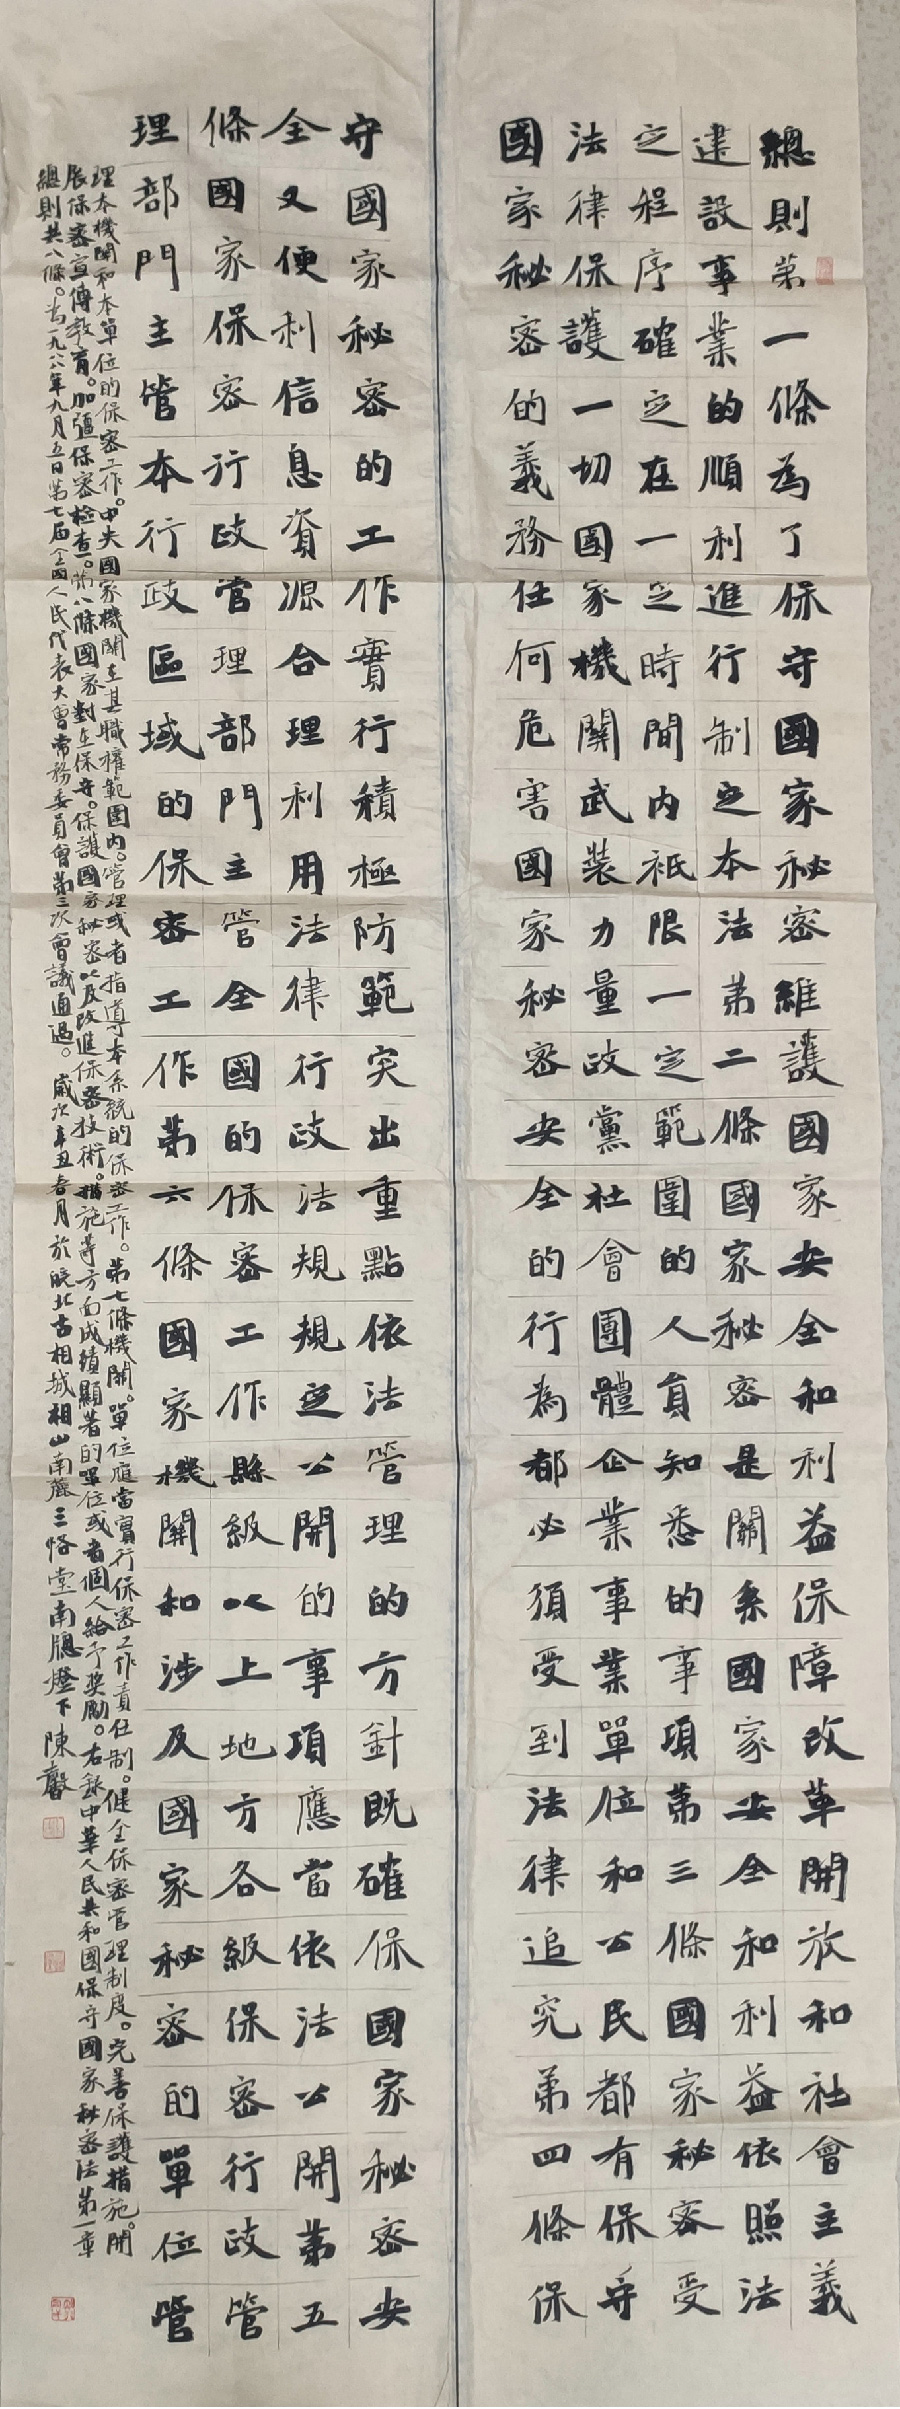 總則第一條為了保守國家秘密維護國家安全和利益保障改革開放和社會主義
建設事業的順利進行制定本法第二條國家秘密是關系國家安全和利益依照法
定程序確定在一定時間內祇限一定範圍的人員知悉的事項第三條國家秘密受
法律保護一切國家機關武裝力量政黨社會團體企業事業單位和公民都有保守
國家秘密的義務任何危害國家秘密安全的行為都必須受到法律追究第四條保
守國家秘密的工作實行積極防範突出重點依法管理的方針既確保國家秘密安
全又便利信息資源合理利用法律行政法規規定公開的事項應當依法公開第五
條國家保密行政管理部門主管全國的保密工作縣級以上地方各級保密行政管
理部門主管本行政區域的保密工作第六條國家機關和涉及國家秘密的單位管
理本機關和本單位的保密工作。中央國家機關在其職權範圍內。管理或者指導本系統的保密工作。第七條機關。單位應當實行保密工作責任制。健全保密管理制度。完善保護措施。開
展保密宣傳教育。加強保密檢查。第八條國家對在保守。保護國家秘密以及改進保密技術。措施等方面成績顯著的單位或者個人給予獎勵。右錄中華人民共和國保守國家秘密法第一章
總則共八條。為一九八八年九月五日第七屆全國人民代表大會常務委員會第三次會議通過。歲次辛丑春月於皖北古相城相山南麓三恪堂南牕燈下陳